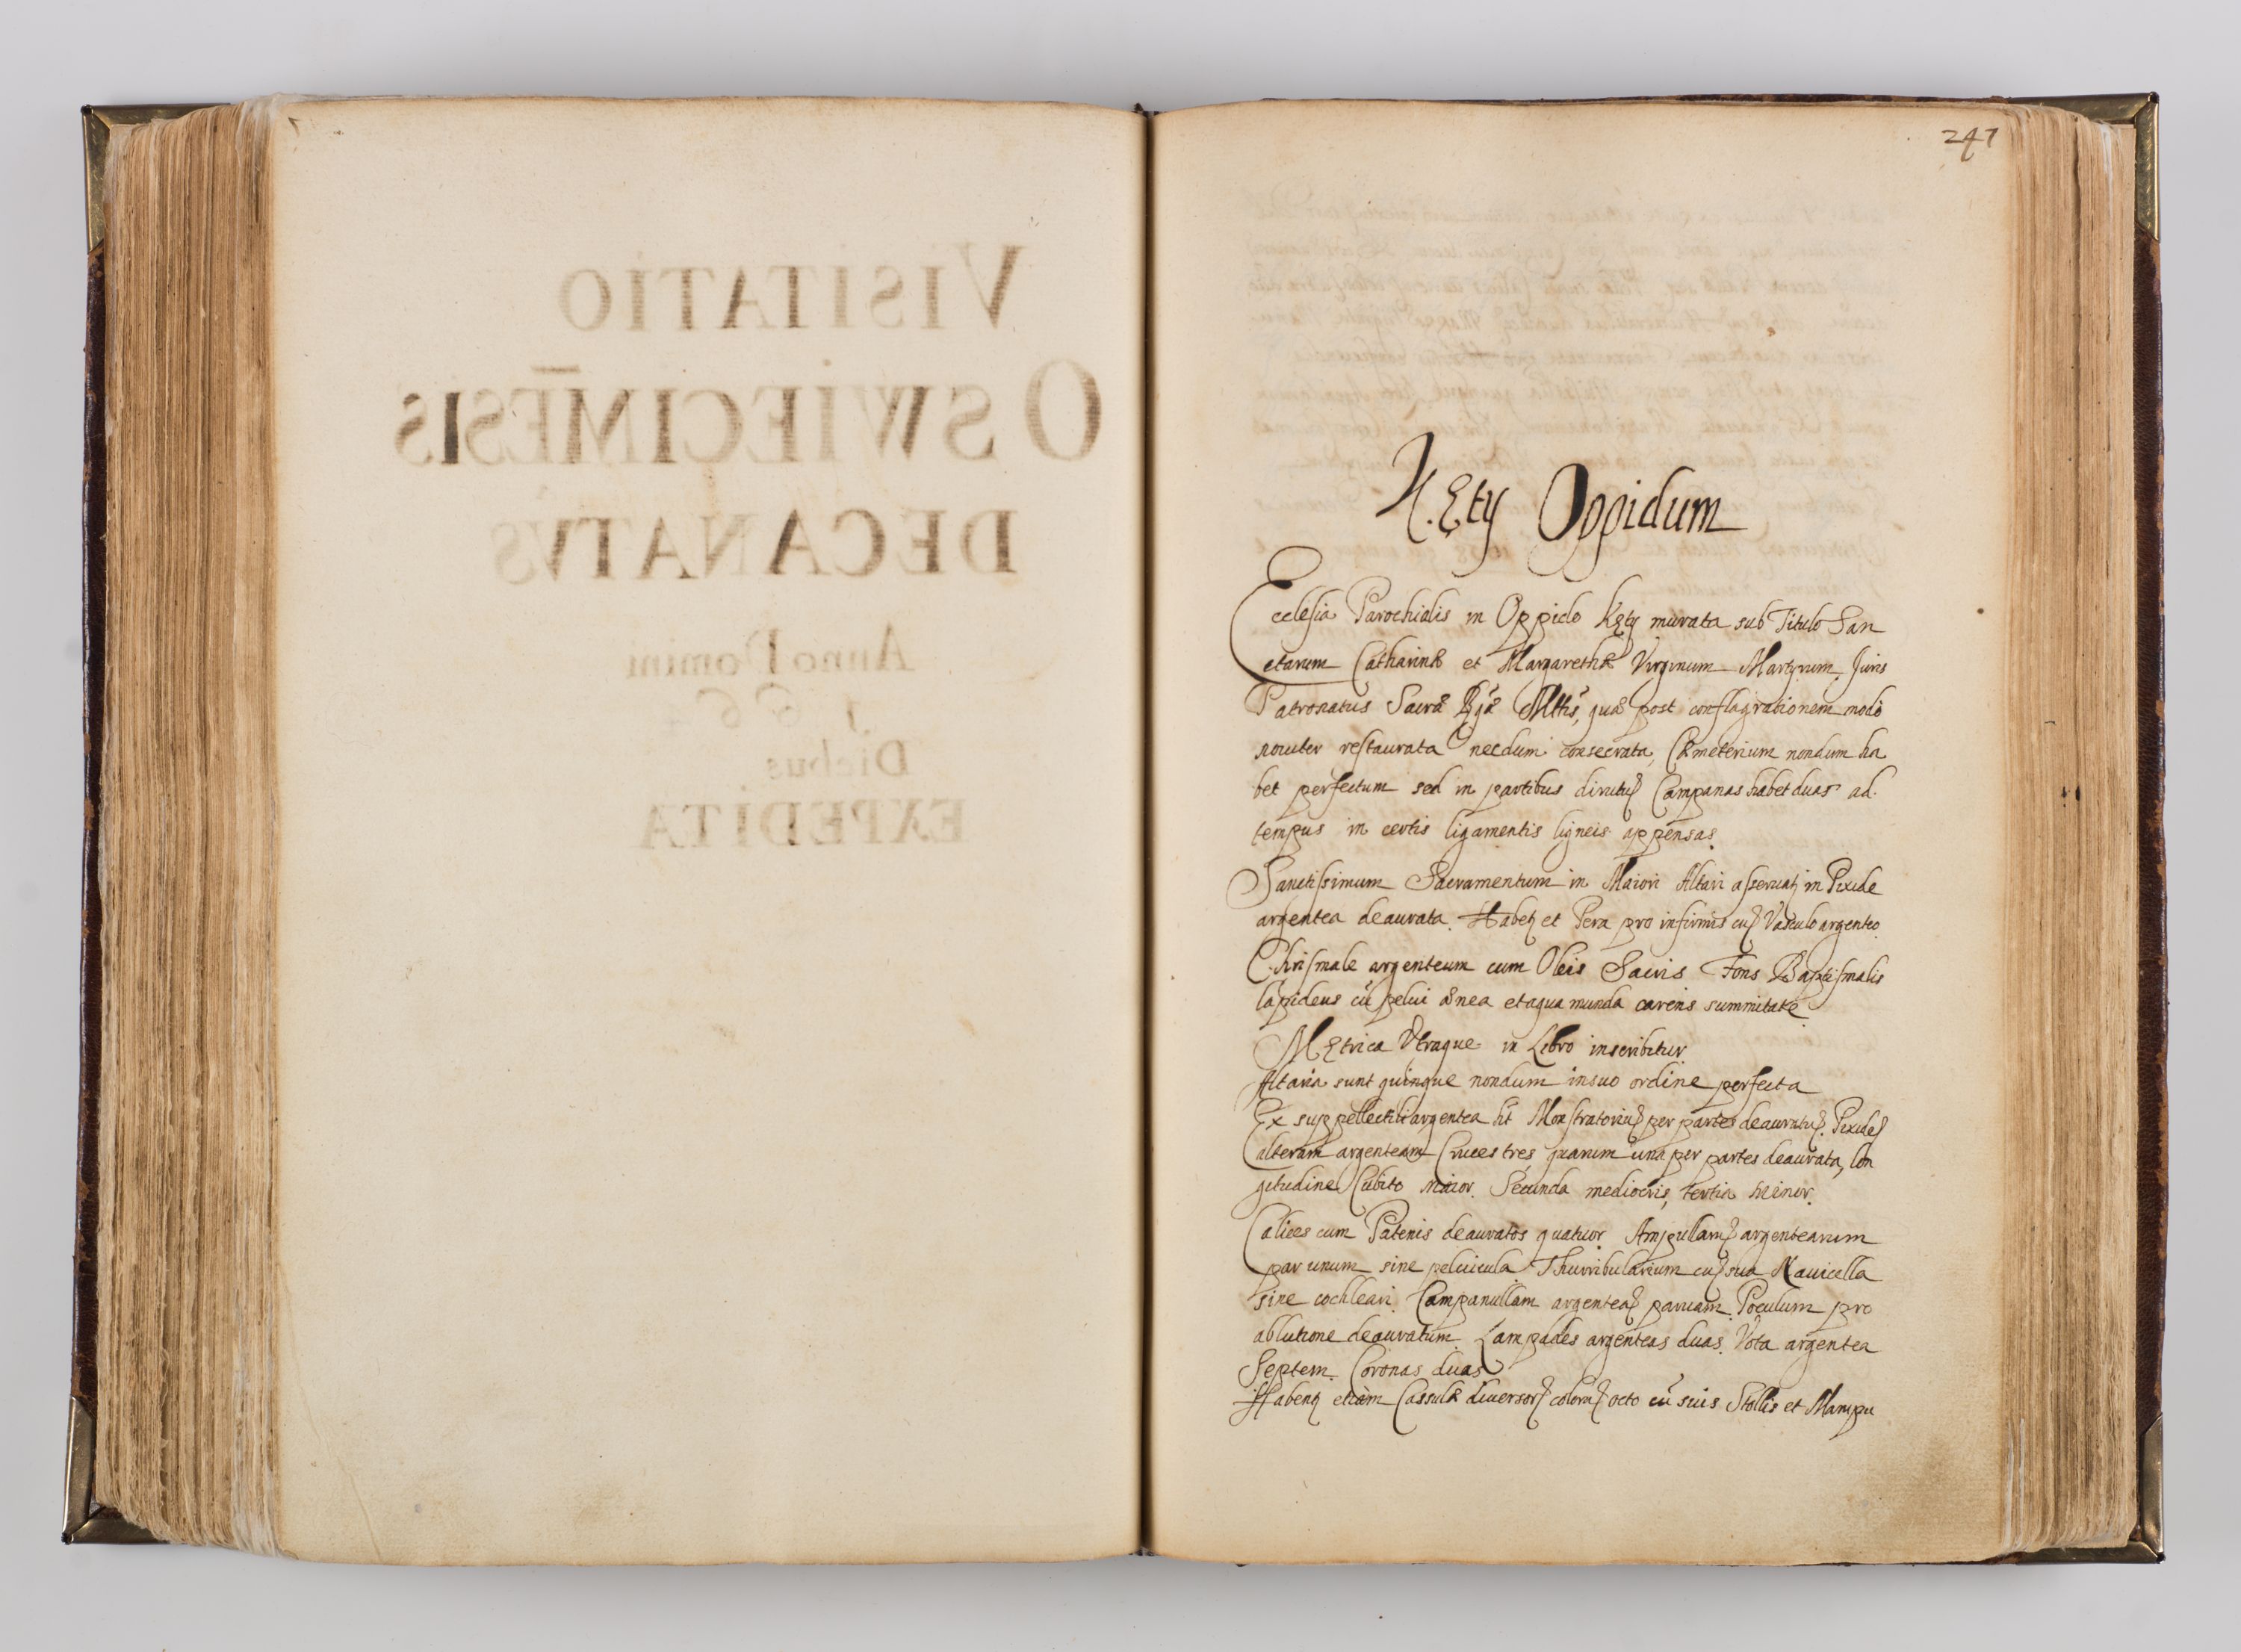 VISITATIO
OSWIECIMĒSIS
DECANATVS
Anno Domini
Diebus
EXPEDITA
247
Kęty Oppidum
Ecclesia Parochialis in Oppido Kęty murata sub Titulo San
ctarum Catharinæ et Margarethæ Virginum Martyrum, Juris
Patronatus Sacræ Rgæ Mttis, quæ post conflagrationem modò
nouiter restaurata necdum consecrata, Cæmeterium nondum ha
bet perfectum sed in partibus dirutū Campanas habet duas ad
tempus in certis ligamentis ligneis appensas.
Sanctissimum Sacramentum in Maiori Altari asseruatʒ in Pixide
argentea deaurata. Habetʒ et Pera pro infirmis cū Vasculo argenteo.
Chrismale argenteum cum Oleis Sacris Fons Baptismalis
lapideus cū pelui ænea et aqua munda carens summitate
Metrica Vtraque in Libro inscribitur
Altaria sunt quinque nondum in suo ordine perfecta
Ex suppellectili argentea ht Monstratoriū per partes deauratū. Pixidē
alteram argenteam Cruces tres, quarum una per partes deaurata, lon
gitudine Cubito maior. Secunda mediocris, tertia minor.
Calices cum Patenis deauratos quatuor. Ampullarū argentearum
par unum sine peluicula. Thurribularium cū sua Nauicella
sine cochleari. Campanullam argenteā paruam. Poculum pro
ablutione deauratum. Lampades argenteas duas. Vota argentea
Septem. Coronas duas
Habentʒ etiam Cassulæ diuersorū colorū octo cū suis Stollis et Manipu